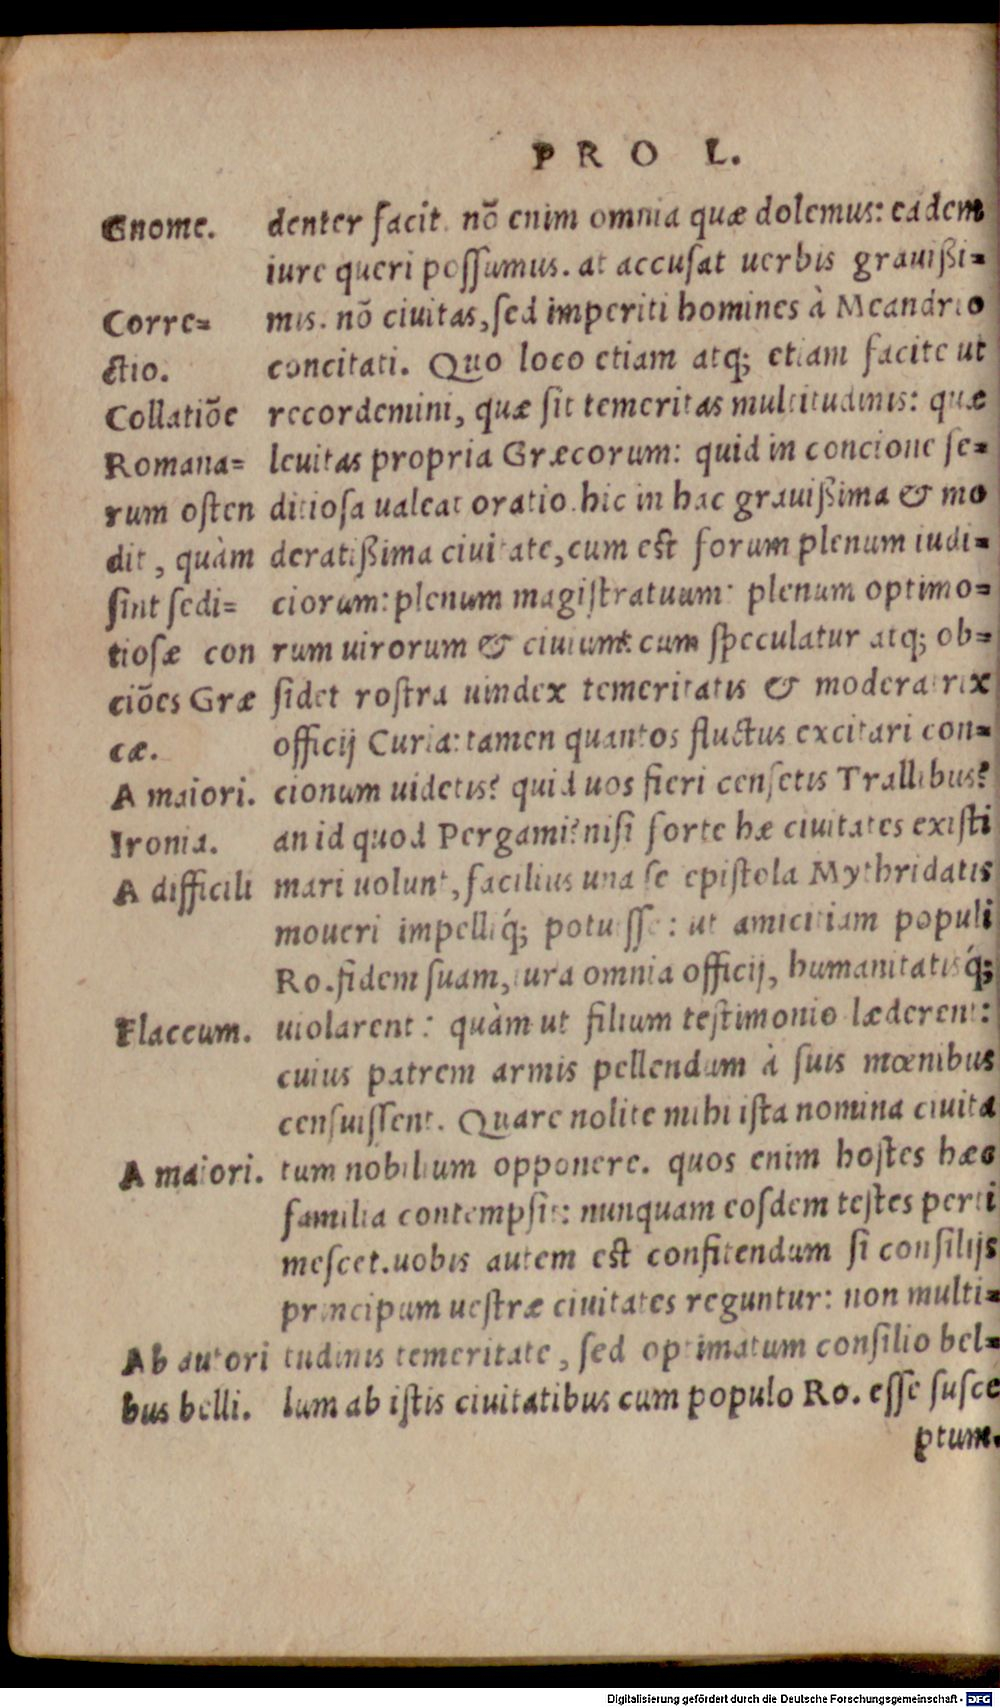 PRO L.
Gnome.
denter facit. nõ enim omnia quæ dolemus: eadem
iure queri possumus. at accusat uerbis grauißi=
Corre=
ctio.
mis. nõ ciuitas, sed imperiti homines à Meandrio
concitati. Quo loco etiam atq; etiam facite ut
Collatiõe
Romana=
rum osten
dit, quàm
sint sedi=
tiosæ con
ciões Græ
cæ.
recordemini, quæ sit temeritas multitudinis: quæ
leuitas propria Græcorum: quid in concione se=
ditiosa ualeat oratio. hic in hac grauißima & mo
deratißima ciuitate, cum est forum plenum iudi=
ciorum: plenum magistratuum: plenum optimo=
rum uirorum & ciuium: cum speculatur atq; ob=
sidet rostra uindex temeritatis & moderatrix
officij Curia: tamen quantos fluctus excitari con=
A maiori.
cionum uidetis? quid uos fieri censetis Trallibus?
Ironia.
an id quod Pergami? nisi forte hæ ciuitates existi
A difficili
mari uolunt, facilius una se epistola Mythridatis
moueri impelliq́; potuisse: ut amicitiam populi
Ro. fidem suam, iura omnia officij, humanitatisq́;
Flaccum.
uiolarent: quàm ut filium testimonio læderent:
cuius patrem armis pellendum à suis mœnibus
censuissent. Quare nolite mihi ista nomina ciuita
A maiori.
tum nobilium opponere. quos enim hostes hæc
familia contempsit: nunquam eosdem testes perti
mescet. uobis autem est confitendum si consilijs
principum uestræ ciuitates reguntur: non multi=
Ab autori
bus belli.
tudinis temeritate, sed optimatum consilio bel=
lum ab istis ciuitatibus cum populo Ro. esse susce
ptum.
Digitalisierung gefördert durch die Deutsche Forschungsgemeinschaft - DFG